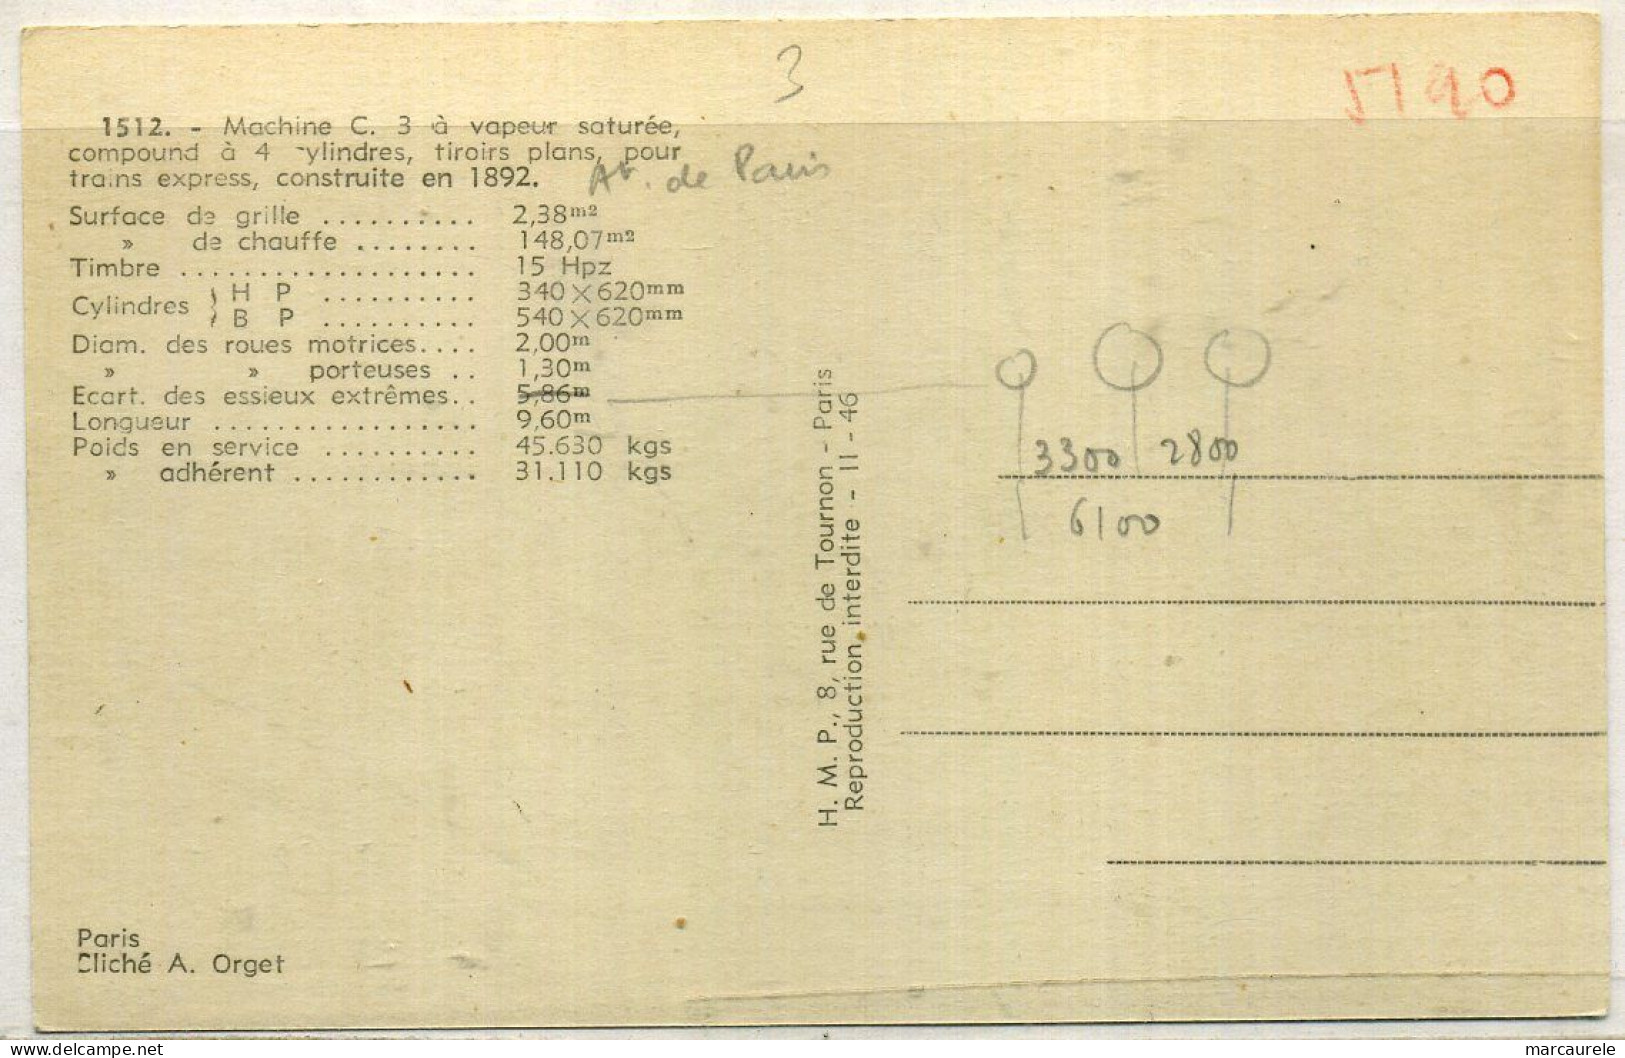 3
5190
1512. - Machine C. 3 à vapeur saturée,
compound à 4 ylindres, tiroirs plans, pour
trains express, construite en 1892.
At. de Paris
Surface de grille .......... 2,38m2
» de chauffe ........ 148,07m2
Timbre ................... 15 Hpz
Cylindres } H P .......... 340×620mm
B P .......... 540×620mm
Diam. des roues motrices.... 2,00m
» » porteuses .. 1,30m
Ecart. des essieux extrêmes.. 5,86m
Longueur ................. 9,60m
Poids en service .......... 45.630 kgs
» adhérent ............ 31.110 kgs
3300 2800
6100
H. M. P., 8, rue de Tournon - Paris
Reproduction interdite - II - 46
Paris
Cliché A. Orget
www.delcampe.net
marcaurele